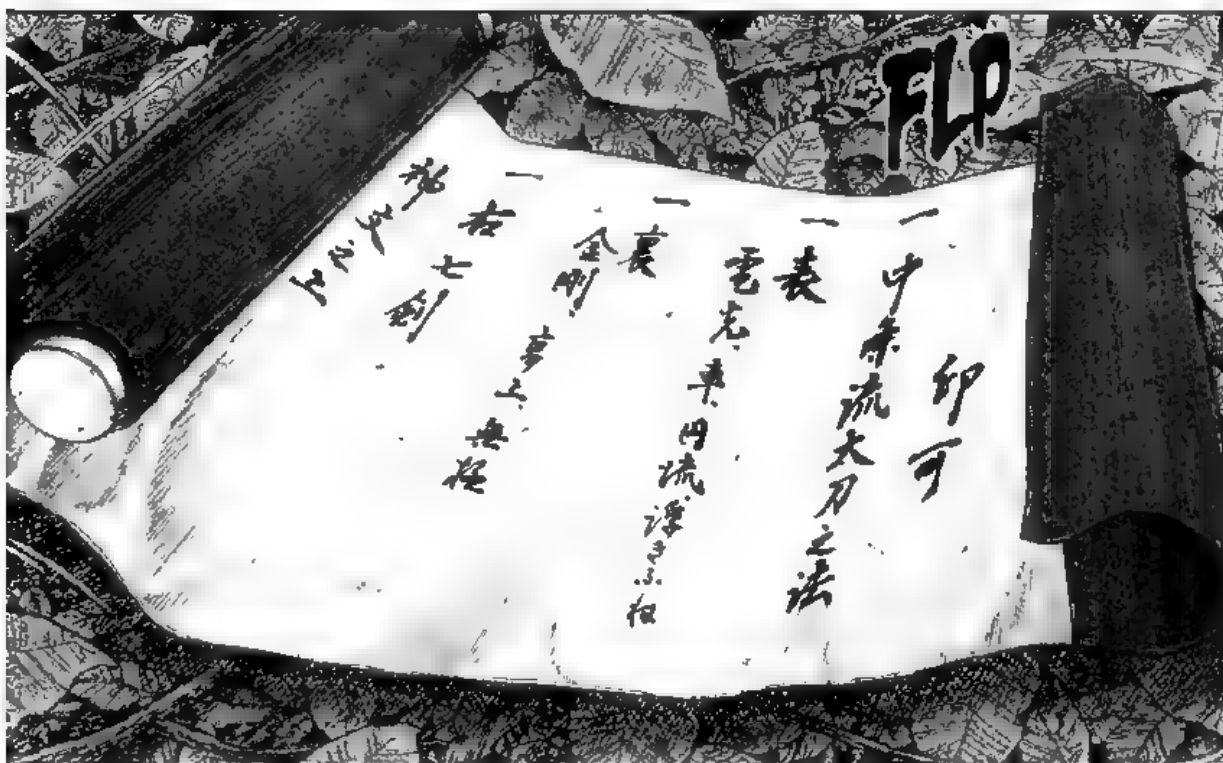 FLP
印可
一 中条流太刀之法
一 表
電光、車、円流、浮きふね
一 裏
金剛、高上、無極
一 右七剣